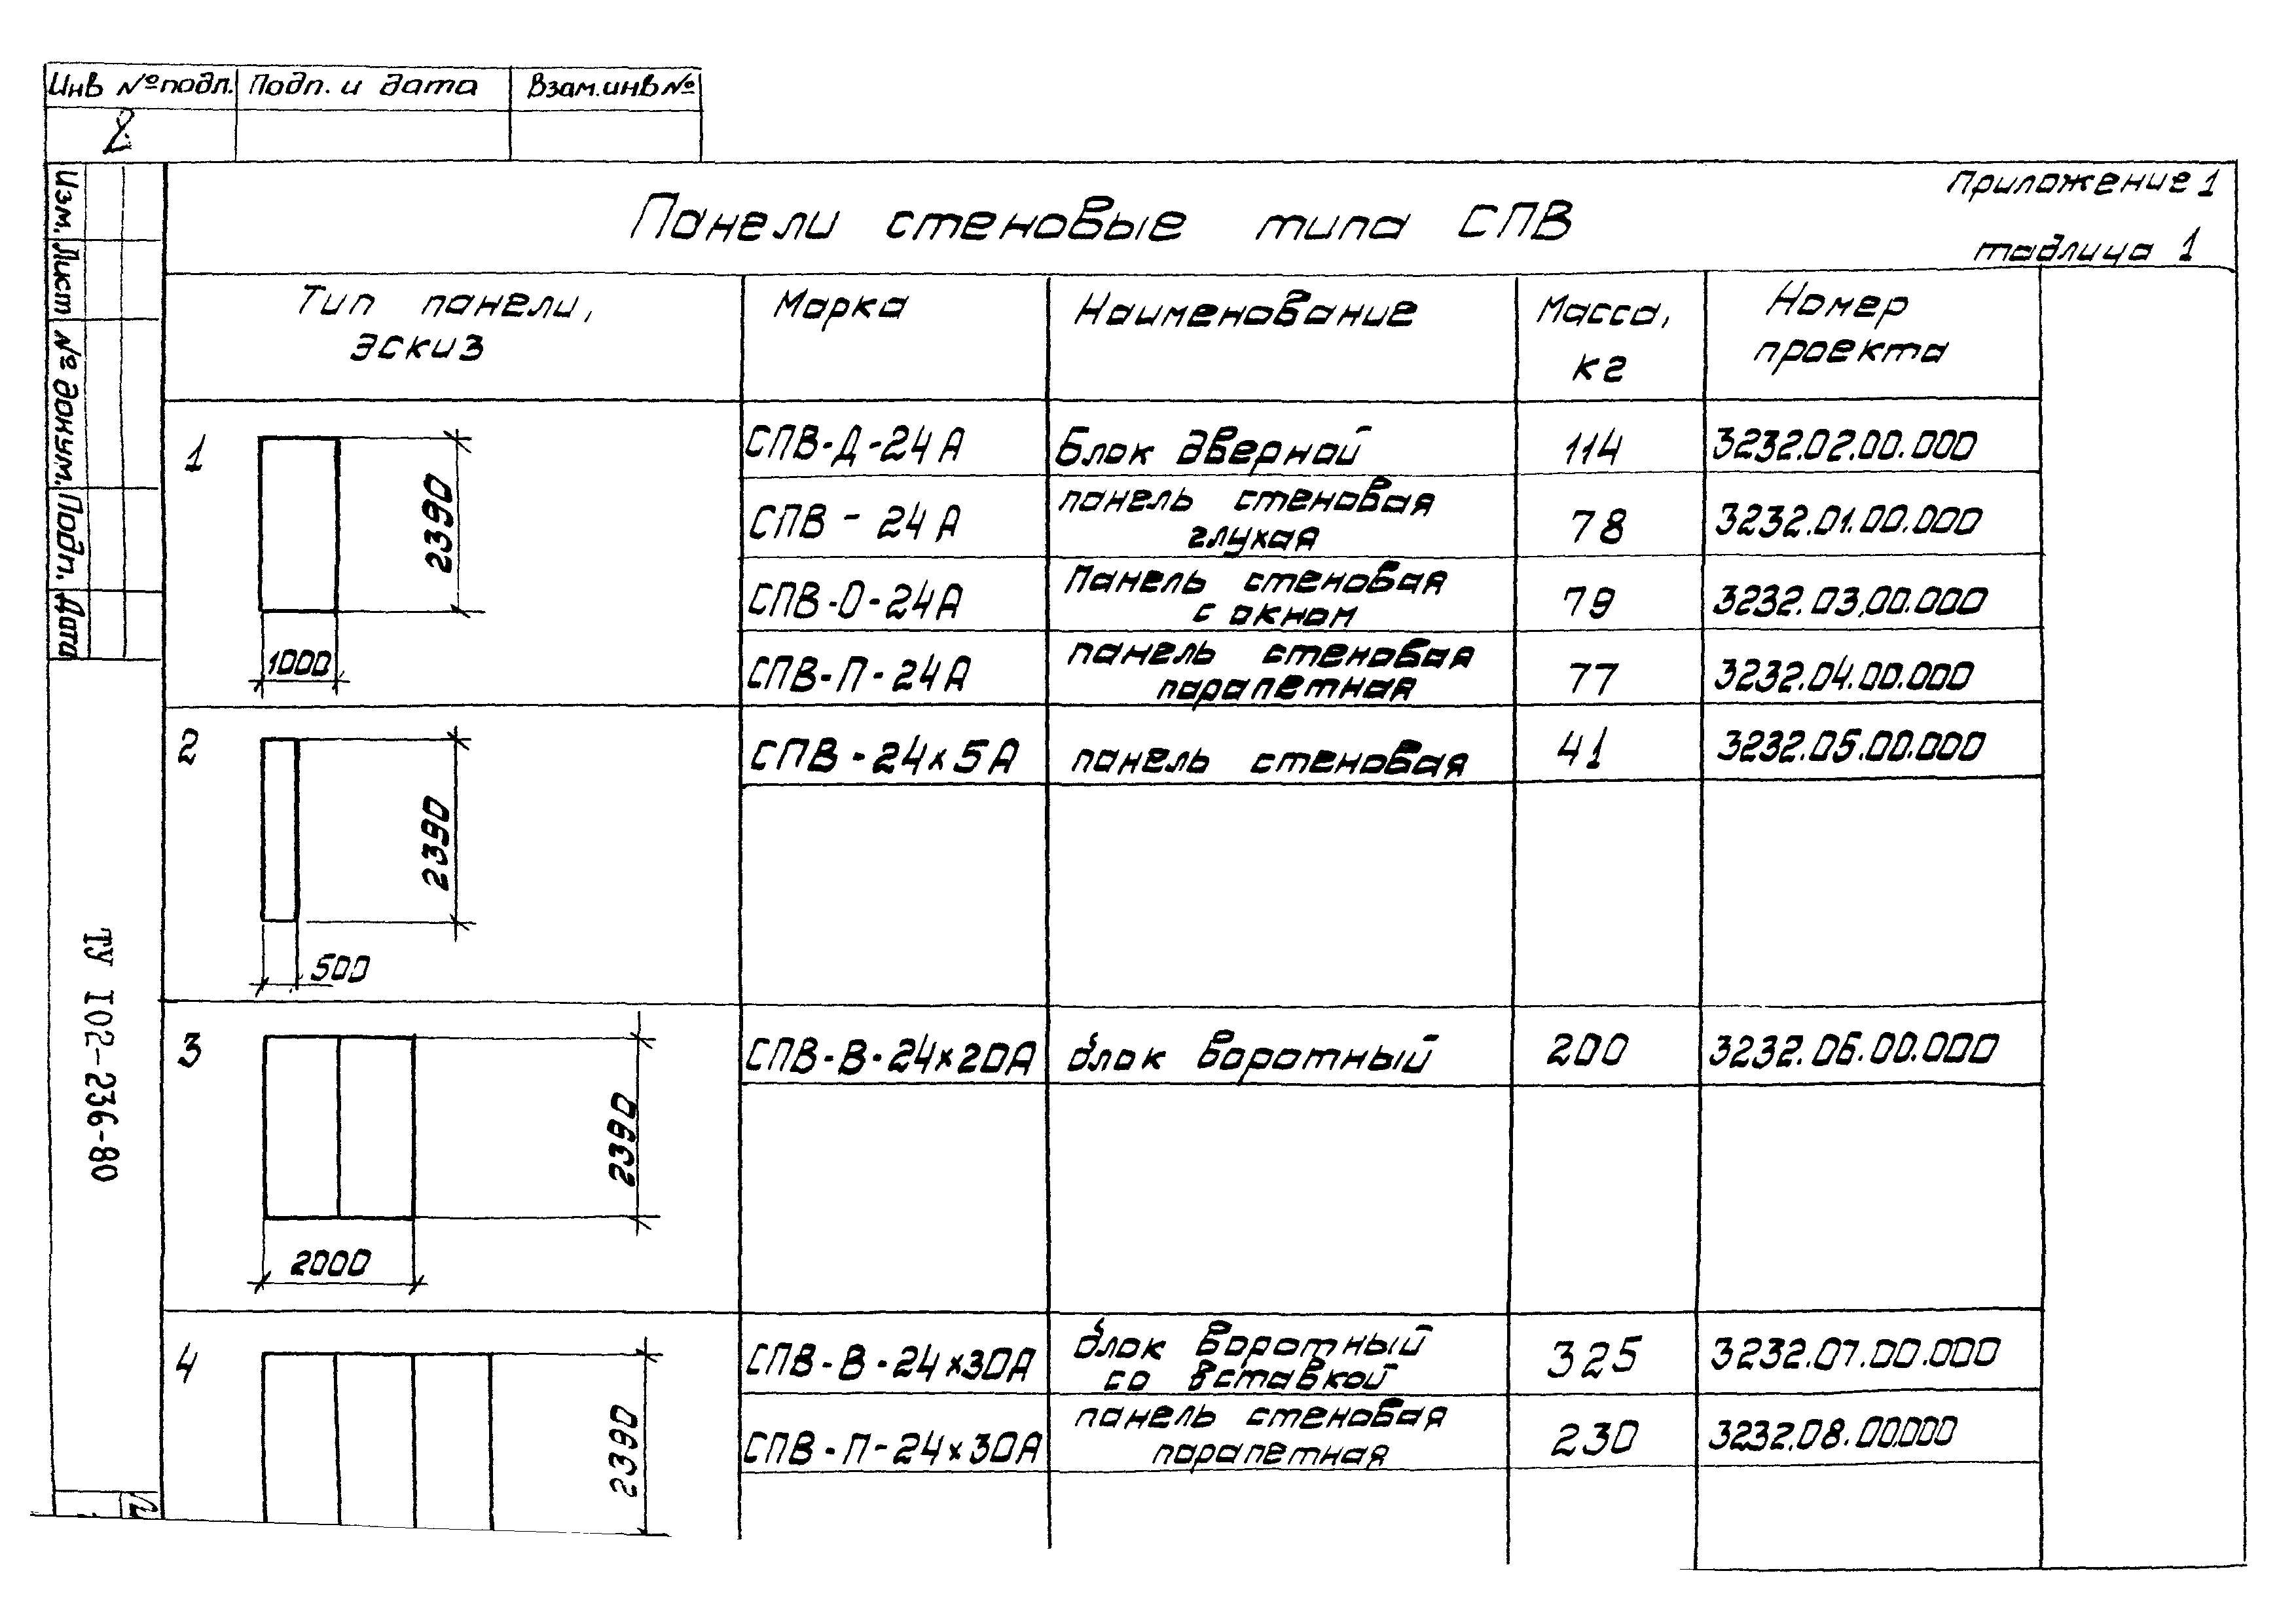 Инв № подл. Подп. и дата Взам.инв №
2
Приложение 1
Панели стеновые типа СПВ
таблица 1
Тип панели, эскиз Марка Наименование Масса, кг Номер проекта
1
2390
1000
СПВ-Д-24А Блок дверной 114 3232.02.00.000
СПВ - 24А панель стеновая глухая 78 3232.01.00.000
СПВ-О-24А Панель стеновая с окном 79 3232.03.00.000
СПВ-П-24А панель стеновая парапетная 77 3232.04.00.000
2
2390
500
СПВ-24х5А панель стеновая 41 3232.05.00.000
3
2390
2000
СПВ-В-24х20А блок воротный 200 3232.06.00.000
4
2390
СПВ-В-24х30А блок воротный со вставкой 325 3232.07.00.000
СПВ-П-24х30А панель стеновая парапетная 230 3232.08.00.000
Изм. Лист № докум. Подп. Дата
ТУ 102-236-80